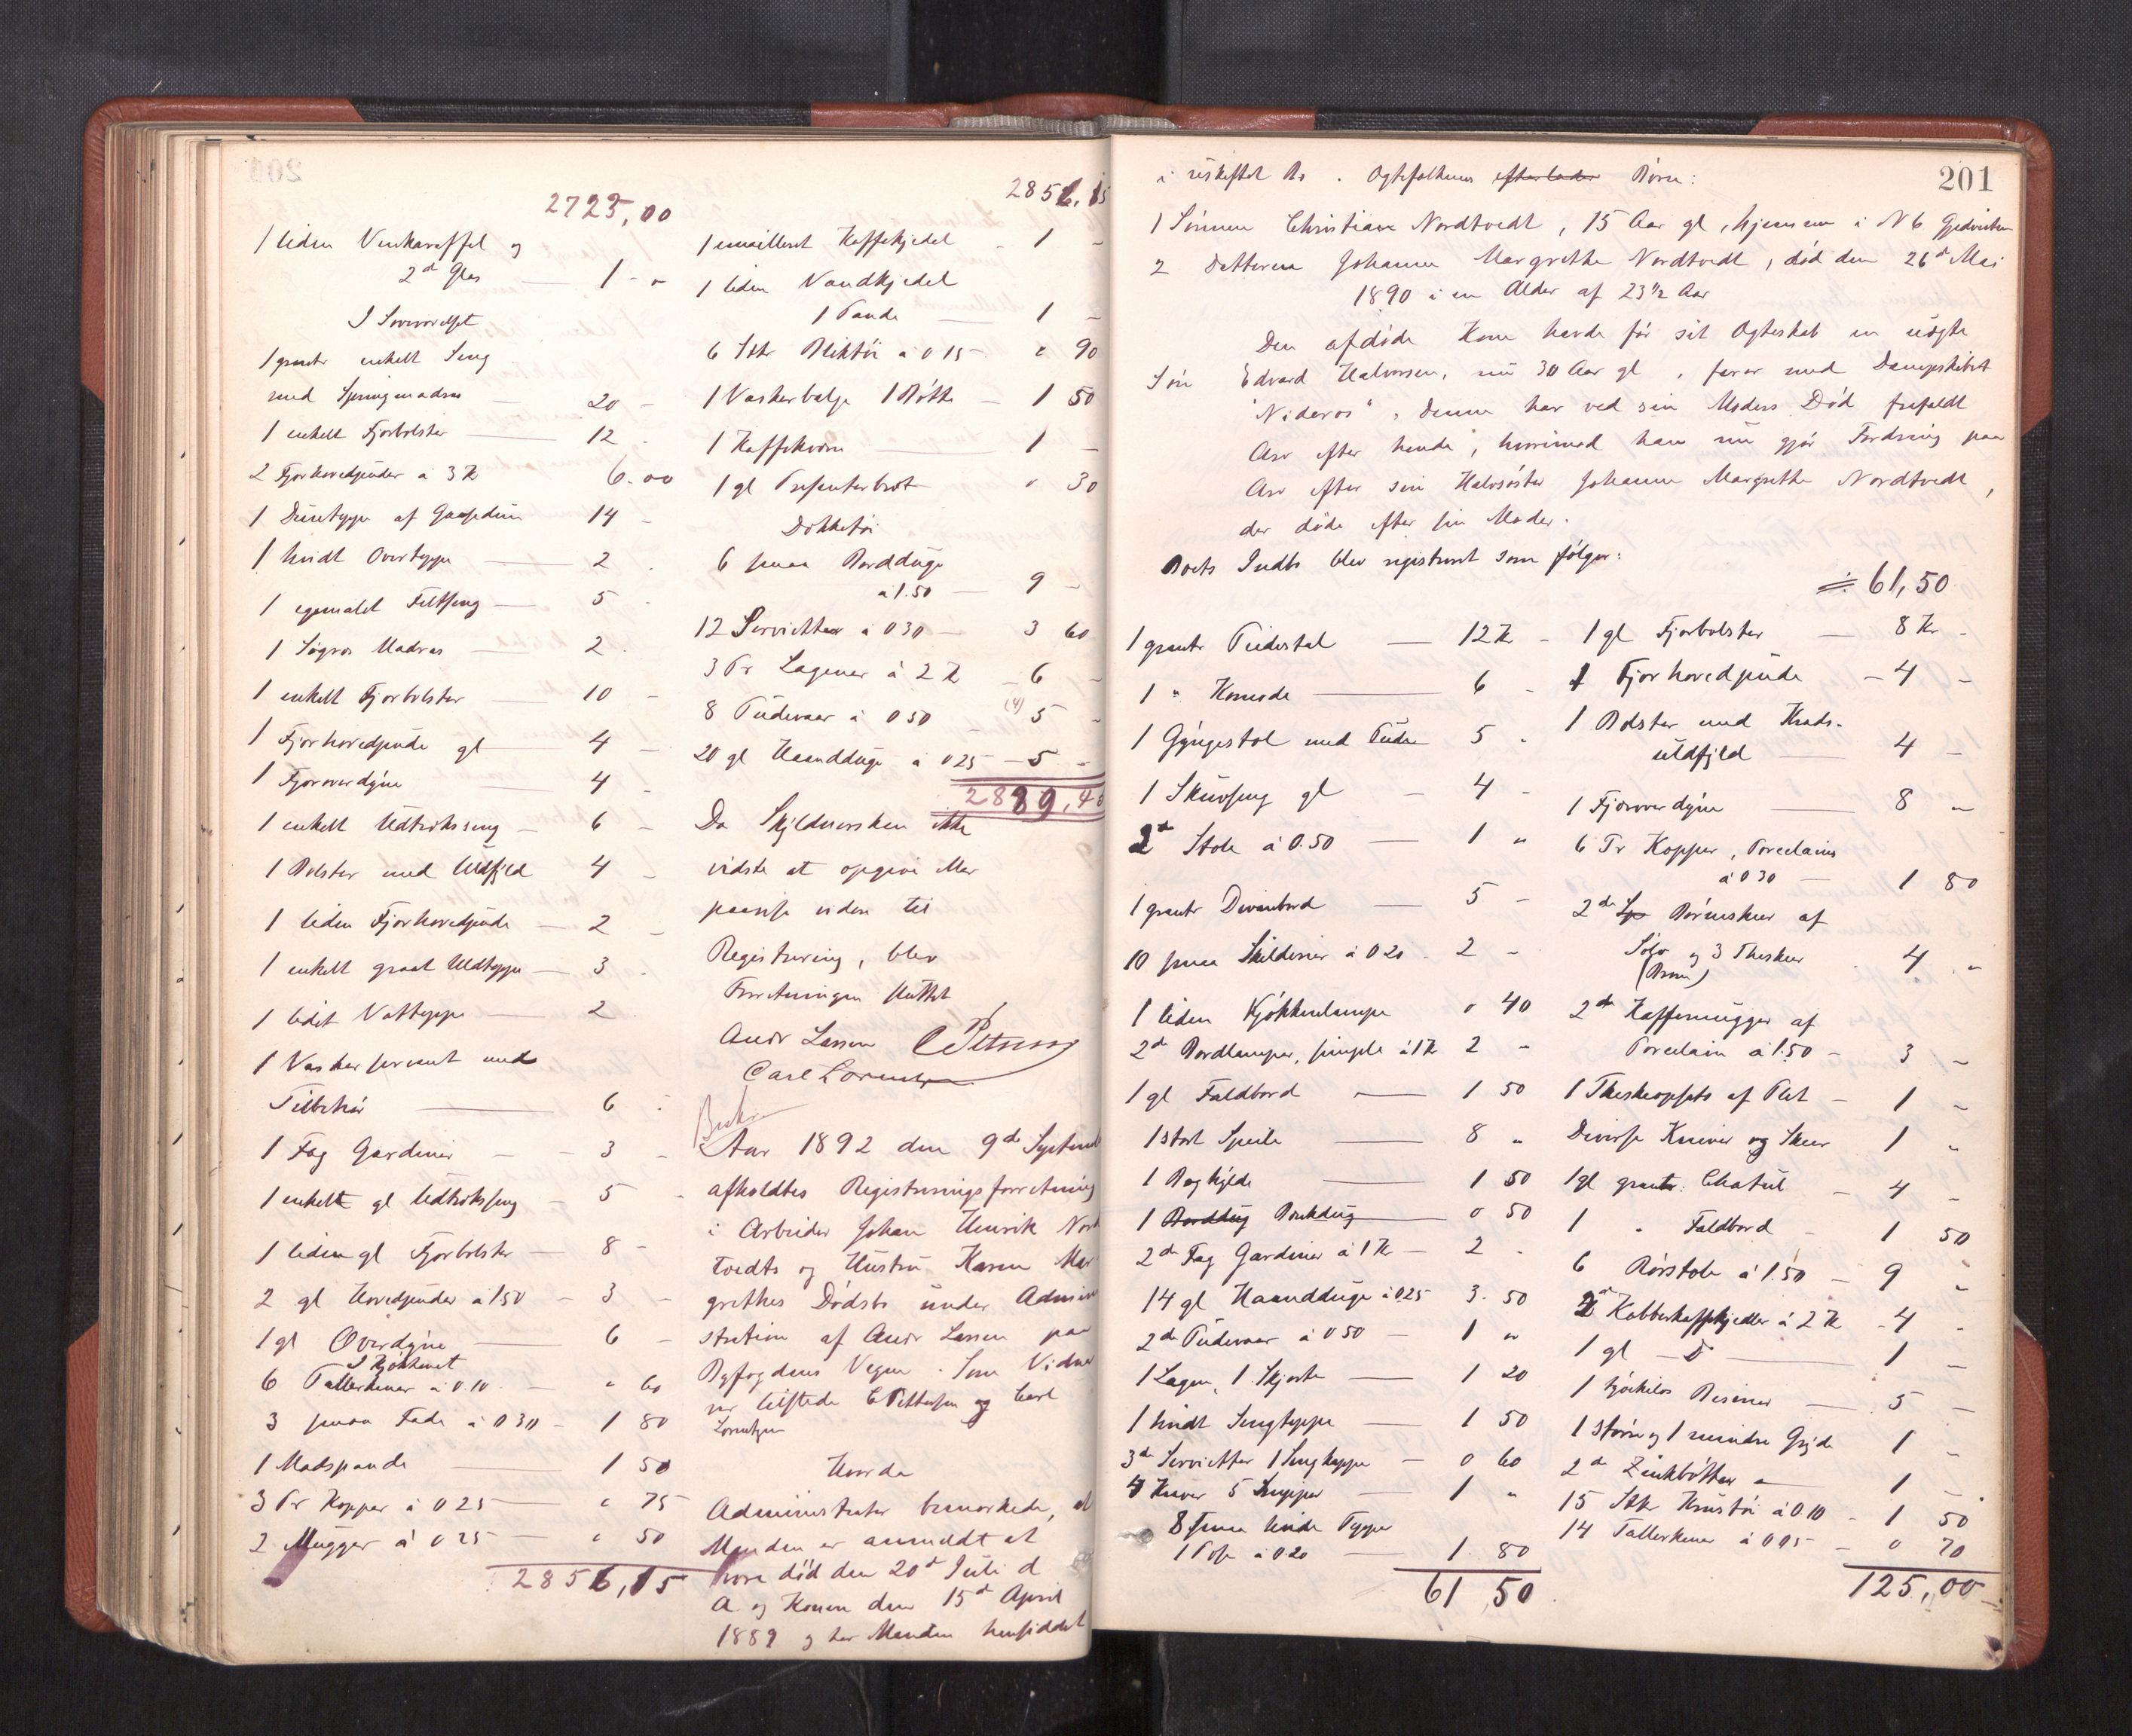 2723,00
1 liden Vinkaraffel og
2de Glas — 1 - "
I Soveværelset
1 grantr enkelt Seng
med Springmadras — 20 -
1 enkelt Fjørbolster — 12 -
2 Fjørhovedpuder à 3 Kr 6.00
1 Duntæppe af Gaasedun 14 -
1 hvidt Overtæppe — 2 -
1 egemalet Feltseng — 5 -
1 Søgræs Madras — 2 -
1 enkelt Fjørbolster — 10 -
1 Fjørhovedpude gl — 4 -
1 Fjøroverdyne — 4 -
1 enkelt Udtræksseng — 6 -
1 Bolster med Uldfyld 4 -
1 liden Fjørhovedpude — 2 -
1 enkelt graat Uldtæppe — 3 -
1 lidet Vattæppe — 2
1 Vaskeservant med
Tilbehør — 6 -
1 Fag Gardiner — 3 -
1 enkelt gl Udtræksseng — 5 -
1 liden gl Fjørbolster — 8 -
2 gl Hovedpuder à 1.50 — 3 -
1 gl Overdyne — 6 -
I Kjøkkenet
6 Tallerkener à 0.10 — " 60
3 smaa Fade à 0 30 — 1 80
1 Madspande — 1 50
3 Pr Kopper à 0 25 — " 75
2 Mugger à 0 25 — " 50
2856,15
2856,15
1 emailleret Kaffekjedel - 1 -
1 liden Vandkjedel
1 Pande — 1 -
6 Stkr Bliktøi à 0 15 - " 90
1 Vaskerbalje 1 Bøtte — 1 50
1 Kaffekværn — 1 -
1 gl Presenterbræt " 30
Dækketøi
6 smaa Bordduge
à 1.50 — 9 -
12 Servietter à 0 30 — 3 60
3 Pr Lagener à 2 Kr — 6 -
8 Pudevaar à 0 50 (4) 5 -
20 gl Haandduge à 0 25 — 5 -
2889,40
Da Skyldnersken ikke
vidste at opgive Mer
paavise viden til
Registrering, blev
Forretningen sluttet
Andr Larsen CPettersen
Carl Lorentzen
Aar 1892 den 9de Septemb
afholdtes Registreringsforretning
i Arbeider Johan Henrik Nord
tvedts og Hustru Karen Mar
grethes Dødsbo under Admini
stration af Andr Larsen paa
Byfogdens Vegne. Som Vidner
var tilstede C Pettersen og Carl
Lorentzen
Hvorda
Administrator bemærkede, at
Manden er anmeldt at
være død den 20de Juli d
A og Konen den 15de April
1889 og har Manden hensiddet
201
i uskiftet Bo. Ægtefolkenes efterlader Børn:
1 Sønnen Christian Nordtvedt, 15 Aar gl, hjemme i N 6
2 Datteren Johanne Margrethe Nordtvedt, død den 26de Mai
1890 i en Alder af 23 1/2 Aar
Den afdøde Kone havde før sit Ægteskab en uægte
Søn Edvard Halvorsen, nu 30 Aar gl, farer med Dampskibet
"Nidaros", denne har ved sin Moders Død frafaldt
Arv efter hende, hvorimod han nu gjør Fordring paa
Arv efter sin Halvsøster Johanne Margrethe Nordtvedt,
der døde efter sin Moder.
Boets Indbo blev registreret som følger:
1 grantr Pidestal — 12 Kr -
1 " Komode — 6 -
1 Gyngestol med Pude 5 -
1 Skuvseng gl — 4 -
2de Stole à 0.50 — 1 "
1 grantr Divanbord — 5 -
10 smaa Skilderier à 0 20 . 2 -
1 liden Kjøkkenlampe 0 40
2de Bordlamper, simple à 1 Kr 2 -
1 gl Faldbord — 1 50
1 stort Speile — 8 "
1 Boghylde — 1 50
1 Borddug Voxdug — 0 50
2de Fag Gardiner à 1 Kr — 2 -
14 gl Haandduge à 0.25 3. 50
2de Pudevaar à 0 50 — 1 "
1 Lagen, 1 Skjorte — 1 20
1 hvidt Sengtæppe — 1 50
3de Servietter 1 Sengkappe — 0 60
4 Kniver 5 — 1 "
8 smaa hvide Tæpper
1 Pose à 0 20 — 1. 80
61 50
÷ 61,50
1 gl Fjørbolster — 8 Kr -
1 Fjørhovedpude — 4 -
1 Bolster med Krads-
uldfyld — 4 -
1 Fjøroverdyne — 8 "
6 Pr Kopper, Porcelains
à 0 30 — 1 80
2de Sp Børneskeer af
Sølv og 3 Theskeer . 4 "
2de Kaffemugger af
Porcelain à 1.50 — 3 -
1 Theskeopsats af Plet — 1 -
Diverse Kniver og Skeer 1 "
1 gl grantr. Chatul — 4 -
1 " Faldbord - 1 50
6 Rørstole à 1.50 — 9 "
2de Kobberkaffekjedler à 2 Kr - 4 -
1 gl — D — 1 -
1 Bismer — 5 -
1 større og 1 mindre Gryde 1 -
2de Zinkbøtter — 1 -
15 Stk Krustøi à 0.10 - 1 50
14 Tallerkener à 0 05 — 0 70
125,00